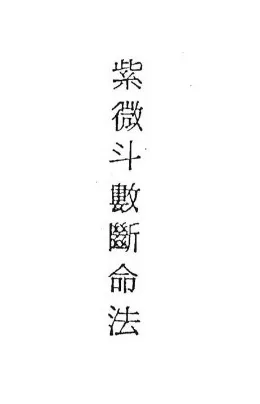 紫微斗數斷命法